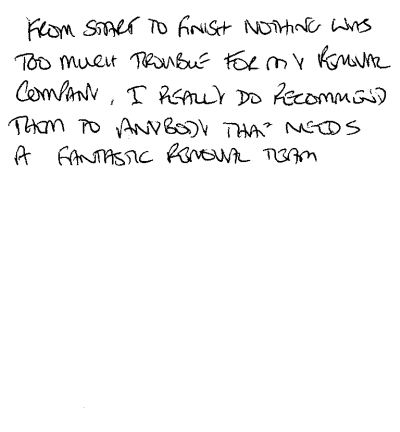 FROM START TO FINISH NOTHING WAS
TOO MUCH TROUBLE FOR MY REMOVAL
COMPANY, I REALLY DO RECOMMEND
THEM TO ANYBODY THAT NEEDS
A FANTASTIC REMOVAL TEAM